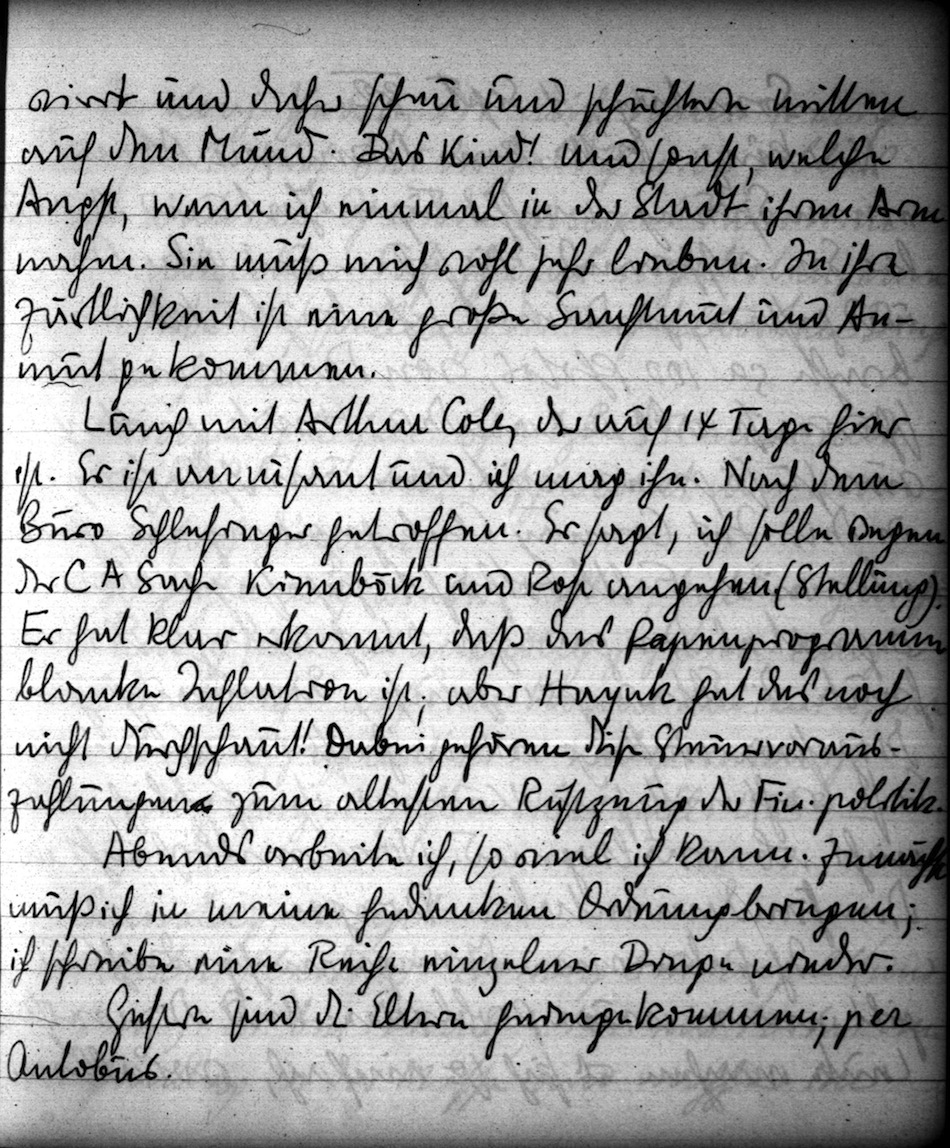 wirrt und daher scheu und schüchtern mitten
auf den Mund. Das Kind! Und sonst, welche
Angst, wenn ich einmal in der Stadt ihren Arm
nahm. Sie muß mich wohl sehr lieben. In ihre
Zärtlichkeit ist eine große Sanftmut und An-
mut gekommen.
Lunch mit Arthur Cole, der auf 14 Tage hier
ist. Er ist amüsant und ich mag ihn. Nach dem
Büro Schlesinger getroffen. Er sagt, ich solle wegen
der C A Sache Kienböck und Rost angehen (Stellung).
Er hat klar erkannt, daß das Papenprogramm
blanke Inflation ist, aber Hayek hat das noch
nicht durchschaut! Dabei gehören diese Steuervoraus-
zahlungen zum ältesten Rüstzeug der Fin. politik.
Abends arbeite ich, so viel ich kann. Zunächst
muß ich in meine Gedanken Ordnung bringen;
ich schreibe eine Reihe einzelner Dinge nieder.
Gestern sind d. Eltern hereingekommen; per
Autobus.